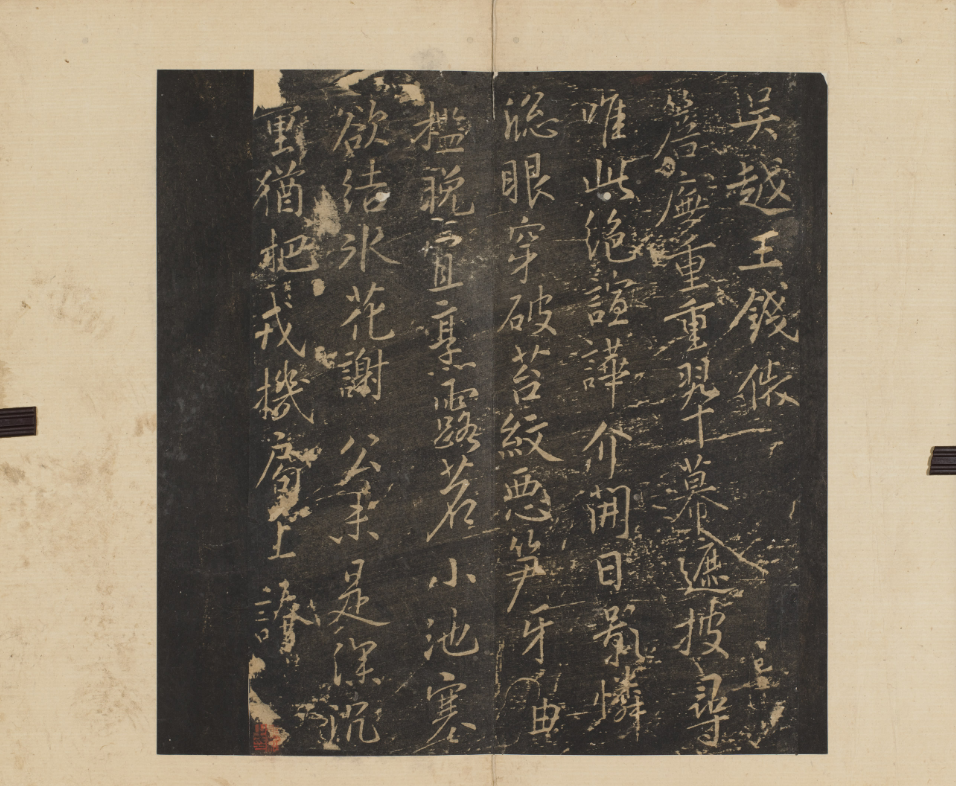 吳越王錢俶
簷廡重重翠幕遮披尋
唯此絕諠譁介開日影憐
窓眼穿破苔紋悪笋牙曲
檻晚宜烹露茗小池寒
欲結氷花謝公未是深沉
量猶把戎機局上誇